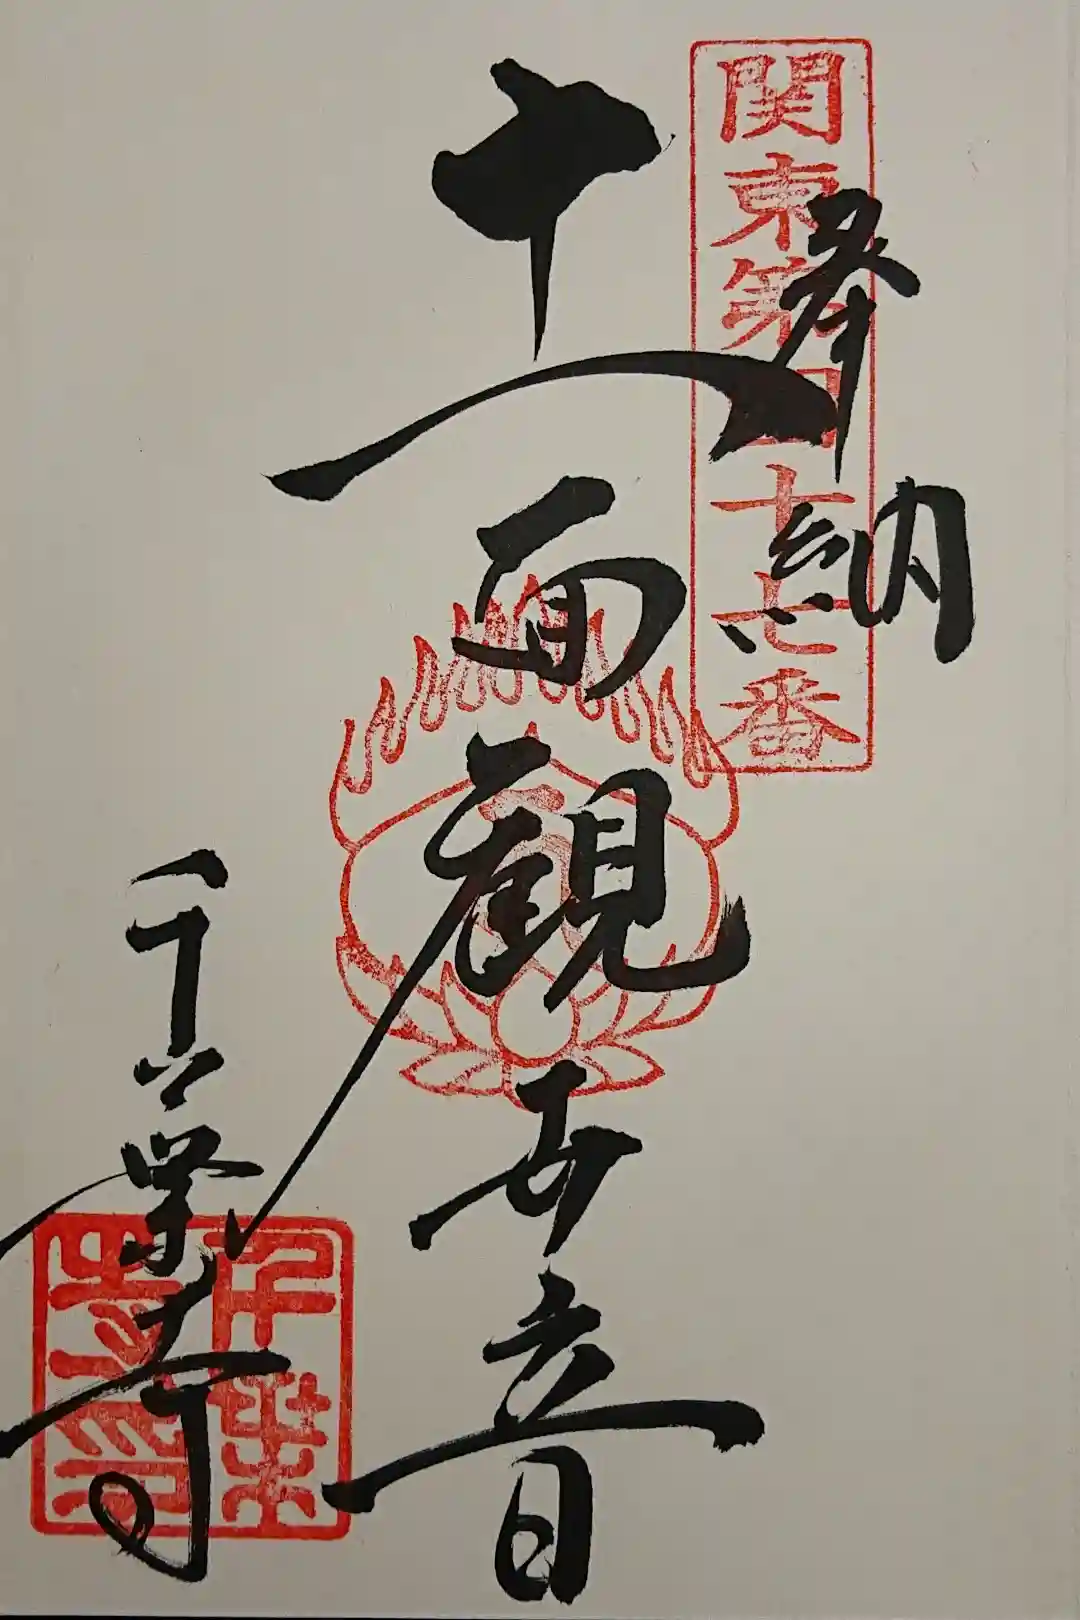 関東第四十七番
奉納
十一面観世音
千葉寺
千葉